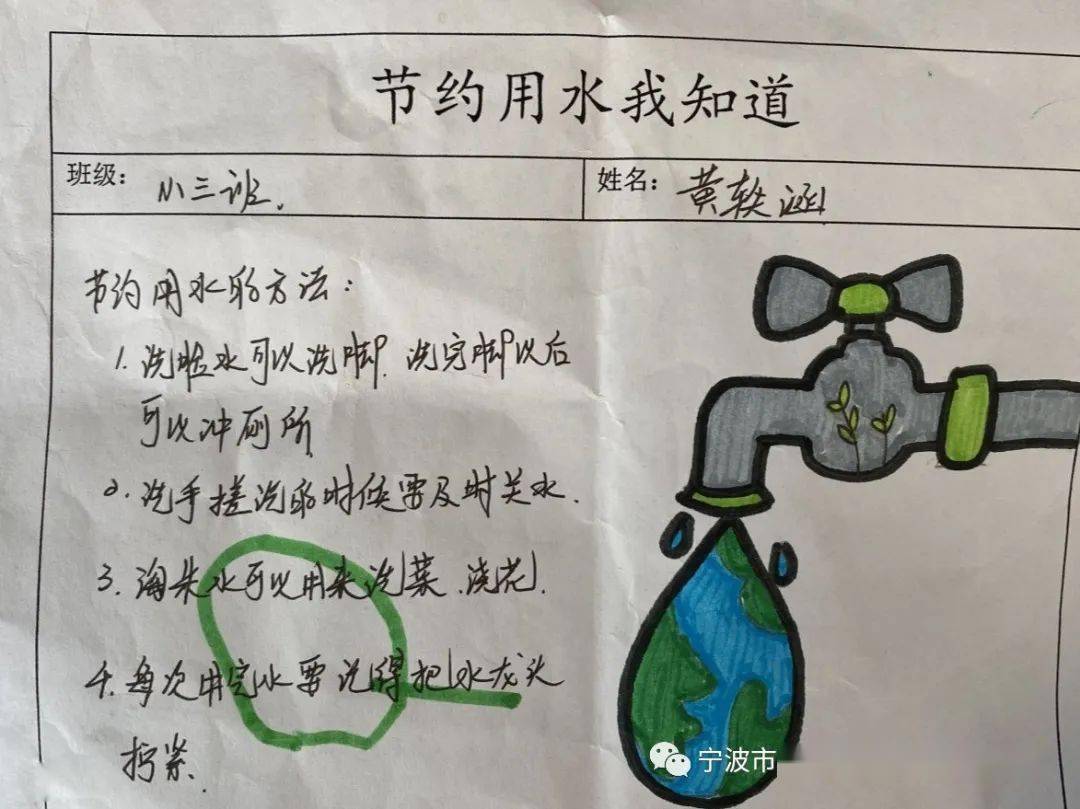 节约用水我知道
班级： 小三班.
姓名： 黄轶涵
节约用水的方法：
1. 洗脸水可以洗脚. 洗完脚以后
可以冲厕所
2. 洗手搓洗的时候要及时关水.
3. 淘米水可以用来洗菜.浇花.
4. 每次用完水要记得把水龙头
拧紧.
宁波市